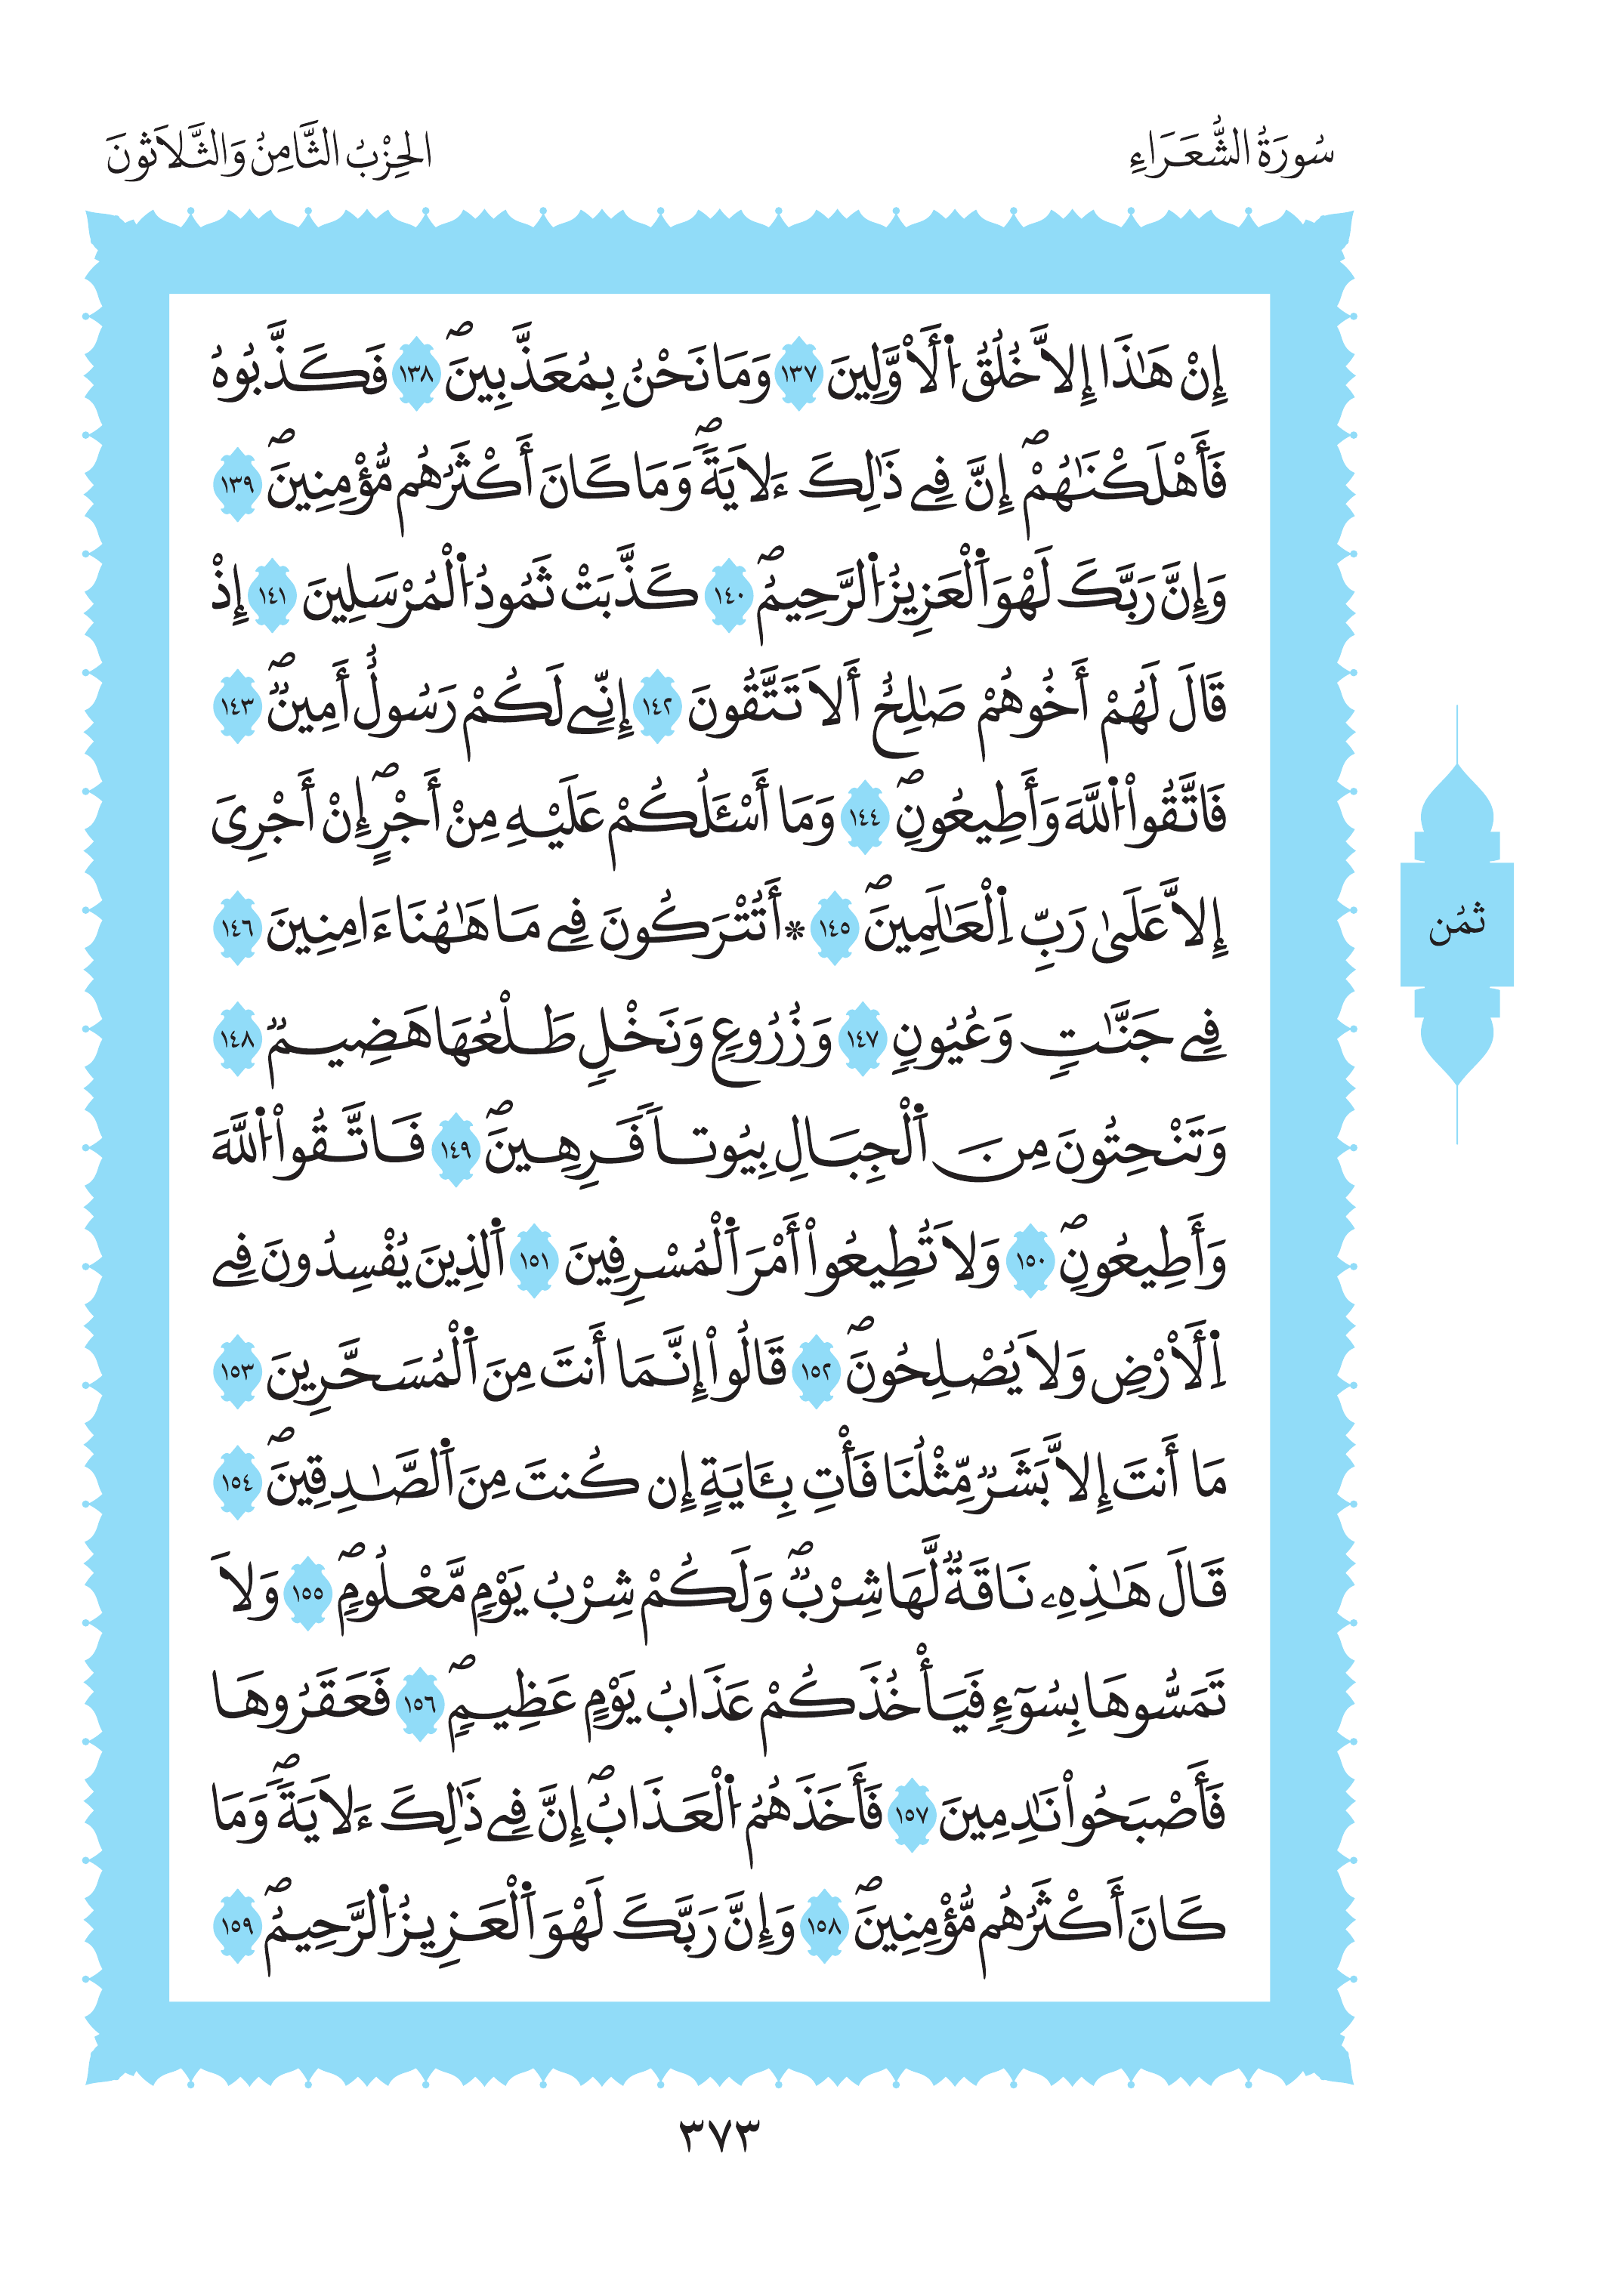 سُورَةُ الشُّعَرَاءِ
الحِزْبُ الثَّامِنُ وَالثَّلَاثُونَ
إِنْ هَٰذَا إِلَّا خُلُقُ اُ۬لَأْوَّلِينَ ١٣٧ وَمَا نَحْنُ بِمُعَذَّبِينَۖ ١٣٨ فَكَذَّبُوهُ
فَأَهْلَكْنَٰهُمْۖ إِنَّ فِے ذَٰلِكَ ءَلَايَةٗۖ وَمَا كَانَ أَكْثَرُهُم مُّؤْمِنِينَۖ ١٣٩
وَإِنَّ رَبَّكَ لَهْوَ اَ۬لْعَزِيزُ اُ۬لرَّحِيمُۖ ١٤٠ كَذَّبَتْ ثَمُودُ اُ۬لْمُرْسَلِينَ ١٤١ إِذْ
قَالَ لَهُمْ أَخُوهُمْ صَٰلِحٌ أَلَا تَتَّقُونَ ١٤٢ إِنِّے لَكُمْ رَسُولٌ أَمِينٞۖ ١٤٣
فَاتَّقُواْ اُ۬للَّهَ وَأَطِيعُونِۖ ١٤٤ وَمَا أَسْـَٔلُكُمْ عَلَيْهِ مِنْ أَجْرٍۖ إِنْ أَجْرِىَ
إِلَّا عَلَىٰ رَبِّ اِ۬لْعَٰلَمِينَۖ ١٤٥ * أَتُتْرَكُونَ فِے مَا هَٰهُنَا ءَامِنِينَ ١٤٦
فِے جَنَّٰتٖ وَعُيُونٖ ١٤٧ وَزُرُوعٖ وَنَخْلٖ طَلْعُهَا هَضِيمٞ ١٤٨
وَتَنْحِتُونَ مِنَ اَ۬لْجِبَالِ بِيُوتاٗ فَرِهِينَۖ ١٤٩ فَاتَّقُواْ اُ۬للَّهَ
وَأَطِيعُونِۖ ١٥٠ وَلَا تُطِيعُواْ أَمْرَ اَ۬لْمُسْرِفِينَ ١٥١ اَ۬لذِينَ يُفْسِدُونَ فِے
اِ۬لَأْرْضِ وَلَا يُصْلِحُونَۖ ١٥٢ قَالُواْ إِنَّمَا أَنتَ مِنَ اَ۬لْمُسَحَّرِينَ ١٥٣
مَا أَنتَ إِلَّا بَشَرٞ مِّثْلُنَا فَأْتِ بِـَٔايَةٍ إِن كُنتَ مِنَ اَ۬لصَّٰدِقِينَۖ ١٥٤
قَالَ هَٰذِهِۦ نَاقَةٞ لَّهَا شِرْبٞۖ وَلَكُمْ شِرْبُ يَوْمٖ مَّعْلُومٖۖ ١٥٥ وَلَا
تَمَسُّوهَا بِسُوٓءٖ فَيَأْخُذَكُمْ عَذَابُ يَوْمٍ عَظِيمٖۖ ١٥٦ فَعَقَرُوهَا
فَأَصْبَحُواْ نَٰدِمِينَ ١٥٧ فَأَخَذَهُمُ اُ۬لْعَذَابُۖ إِنَّ فِے ذَٰلِكَ ءَلَايَةٗۖ وَمَا
كَانَ أَكْثَرُهُم مُّؤْمِنِينَۖ ١٥٨ وَإِنَّ رَبَّكَ لَهْوَ اَ۬لْعَزِيزُ اُ۬لرَّحِيمُۖ ١٥٩
ثمُن
٣٧٣